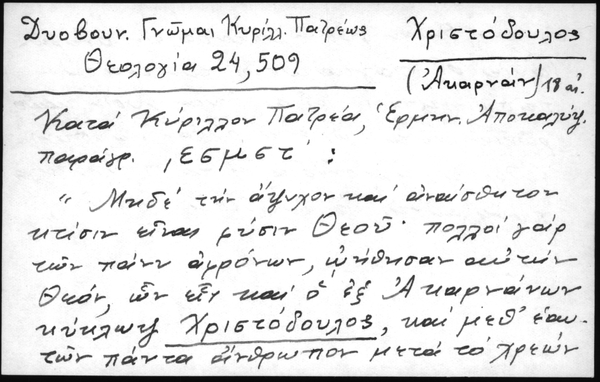 Δυοβουν. Γνῶμαι Κυρίλλ. Πατρέως
Θεολογία 24, 509
Χριστόδουλος
(Ἀκαρνάν) 18 αἰ.
Κατά Κύριλλον Πατρέα, Ἑρμην. Ἀποκαλύψ.
παράγρ. ͵εσμστ΄ :
" Μηδέ τήν ἄψυχον καί ἀναίσθητον
κτίσιν εἶναι φύσιν Θεοῦ· πολλοί γάρ
τῶν πάνυ ἀφρόνων, ᾠήθησαν αὐτήν
Θεόν, ὧν εἷς καί ὁ ἐξ Ἀκαρνάνων
κύκλωψ Χριστόδουλος, καί μεθ' ἑαυ-
τῶν πάντα ἄνθρωπον μετά τό χρεών